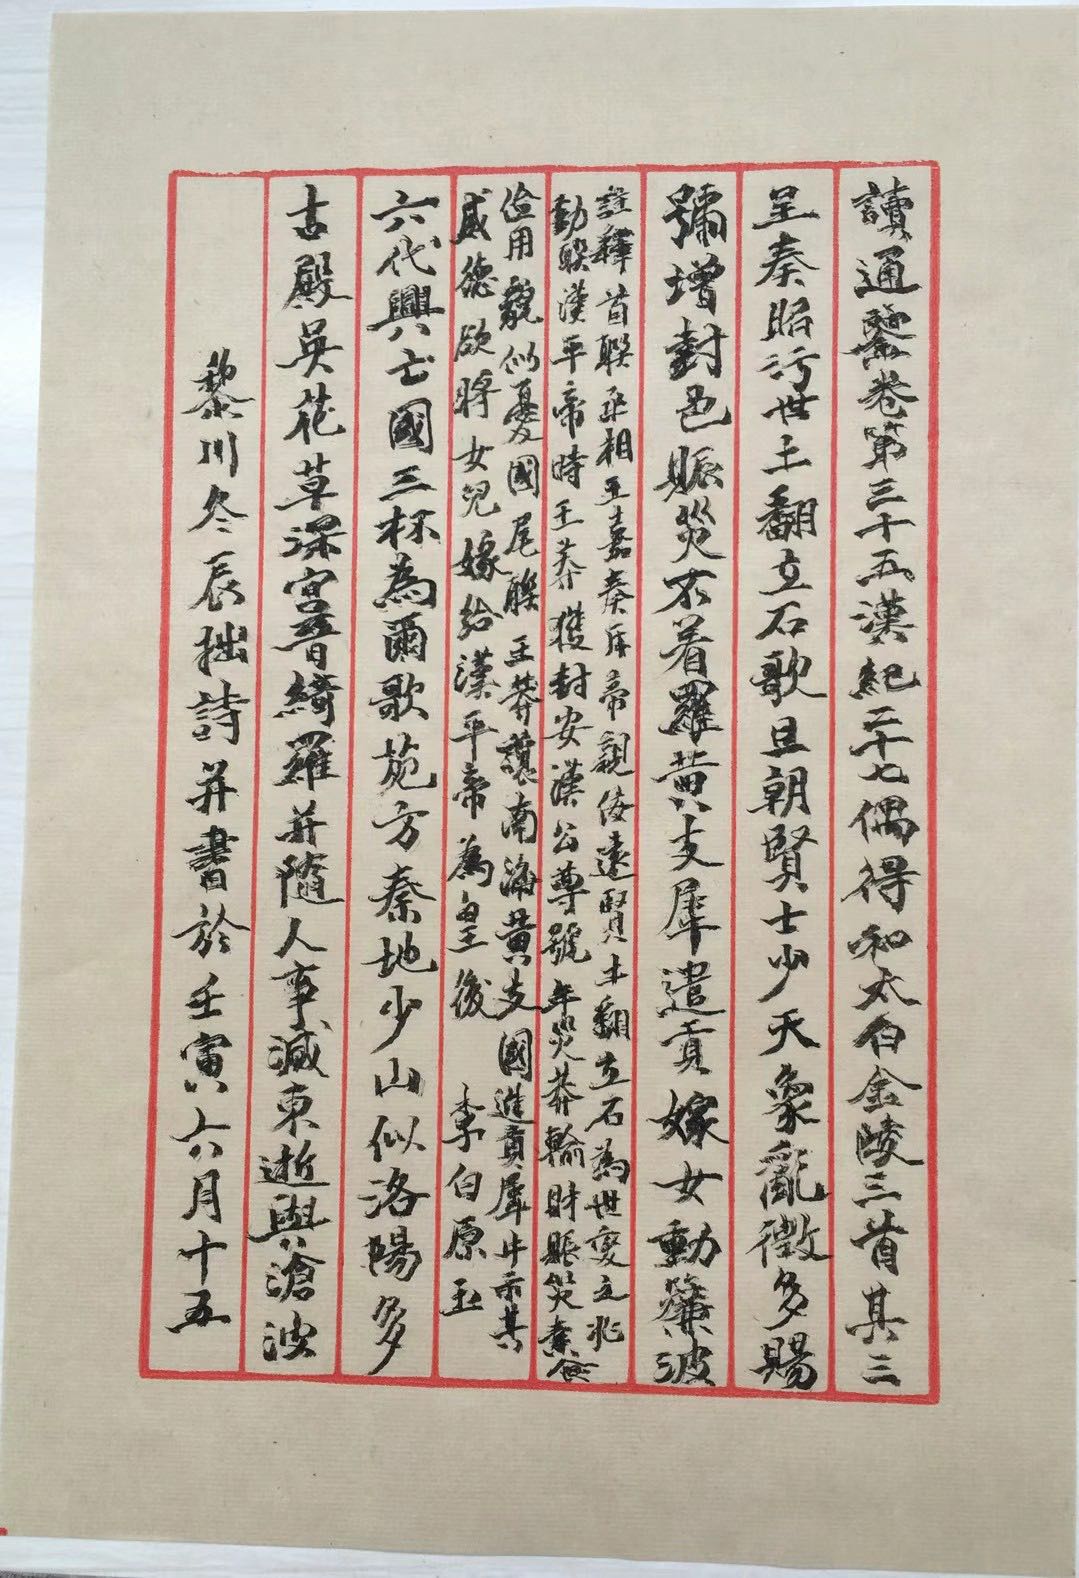 讀通鑒卷第三十五漢紀二十七偶得和太白金陵三首其三
呈奏昭污世土翻立石歌旦朝賢士少天象亂徵多賜
號增封邑賑災不着羅黄支犀遣貢嫁女動簾波
註釋首聯丞相王嘉奏斥帝親佞遠賢土翻立石為世變之兆
動聯漢平帝時王莽獲封安漢公尊號年災莽輸財賑災素食
儉用貌似憂國尾聯王莽讓南海黄支國進貢犀牛示其
威德欲將女兒嫁給漢平帝為皇後 李白原玉
六代興亡國三杯為爾歌苑方秦地少山似洛陽多
古殿吳花草深宮晉綺羅并隨人事滅東逝與滄波
黎川冬辰拙詩并書於壬寅六月十五